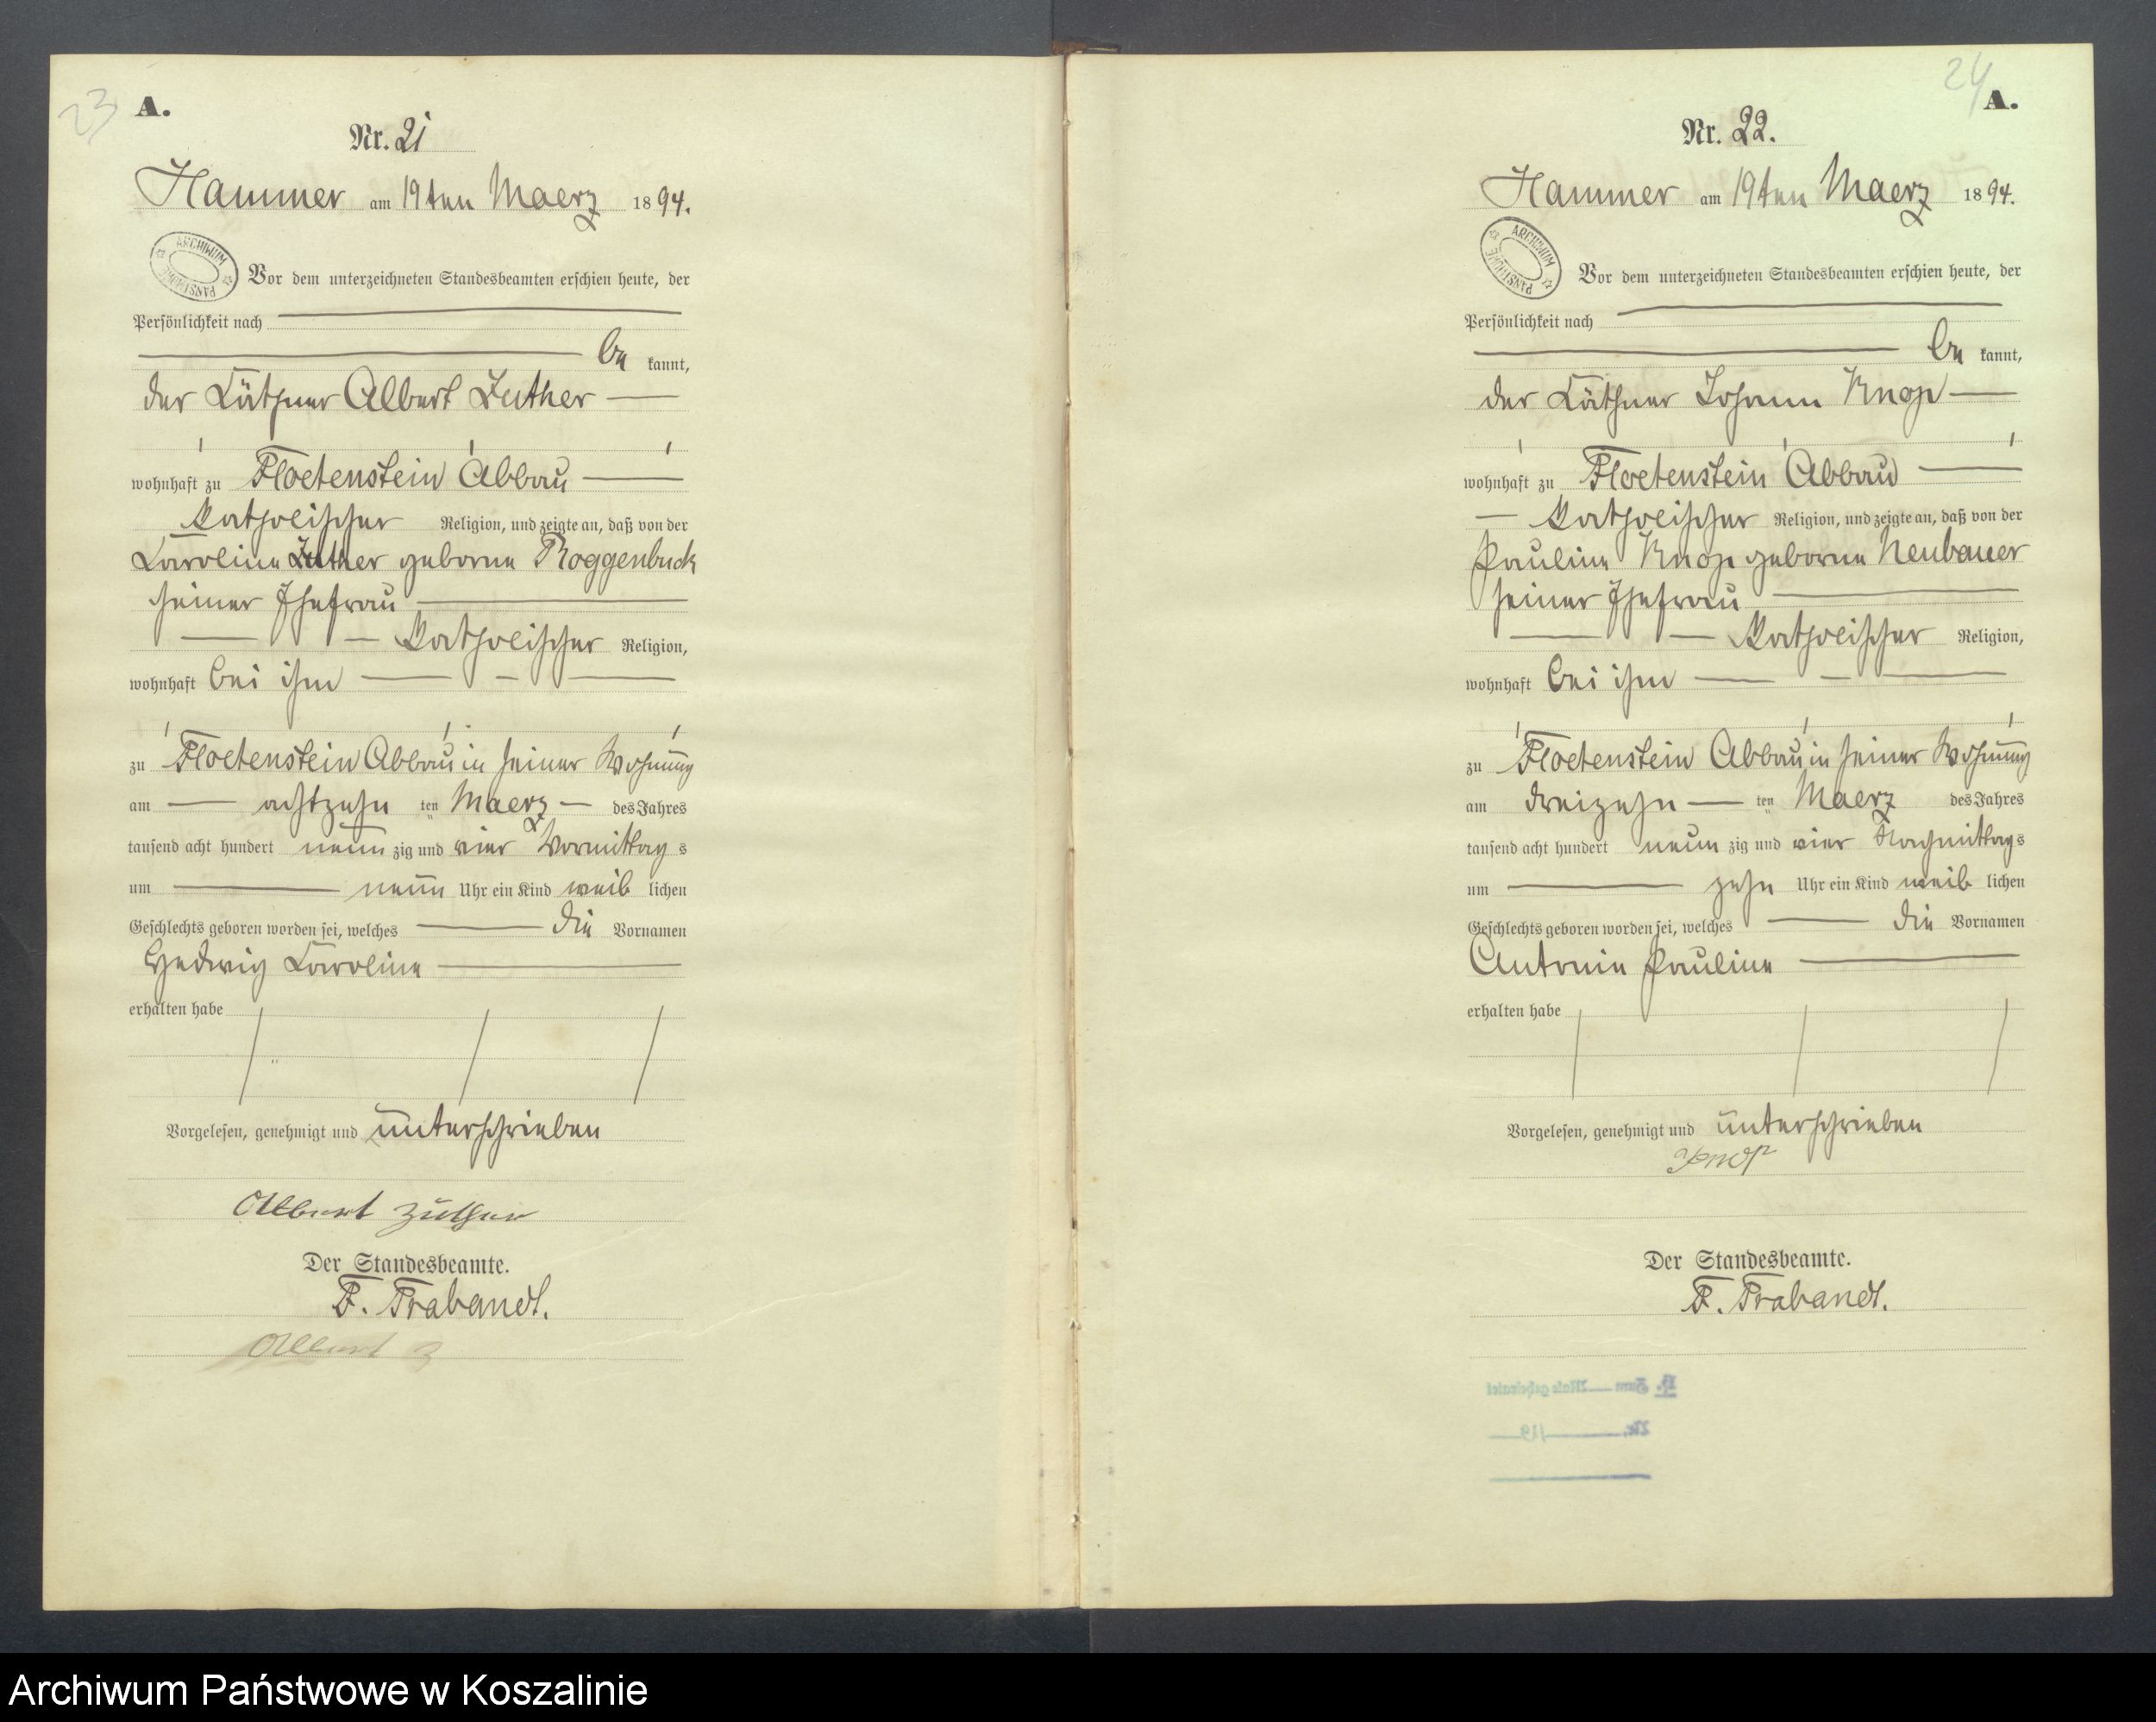 23
A.
Nr. 21
Hammer am 19ten Maerz 1894.
ARCHIWUM PAŃSTWOWE
Vor dem unterzeichneten Standesbeamten erschien heute, der
Persönlichkeit nach
be kannt,
der Käthner Albert Zuther
wohnhaft zu Floetenstein Abbau
katholischer Religion, und zeigte an, daß von der
Caroline Zuther geborne Roggenbuck
seiner Ehefrau
katholischer Religion,
wohnhaft bei ihm
zu Floetenstein Abbau in seiner Wohnung
am achtzehn ten Maerz des Jahres
tausend acht hundert neun zig und vier Vormittag s
um neun Uhr ein Kind weib lichen
Geschlechts geboren worden sei, welches die Vornamen
Hedwig Caroline
erhalten habe
Vorgelesen, genehmigt und unterschrieben
Albert Züther
Der Standesbeamte.
F. Trabandt.
Albert Z
24
A.
Nr. 22.
Hammer am 19ten Maerz 1894.
ARCHIWUM PAŃSTWOWE
Vor dem unterzeichneten Standesbeamten erschien heute, der
Persönlichkeit nach
be kannt,
der Käthner Johann Knop
wohnhaft zu Floetenstein Abbau
katholischer Religion, und zeigte an, daß von der
Pauline Knop geborne Neubauer
seiner Ehefrau
katholischer Religion,
wohnhaft bei ihm
zu Floetenstein Abbau in seiner Wohnung
am dreizehn ten Maerz des Jahres
tausend acht hundert neun zig und vier Nachmittags
um zehn Uhr ein Kind weib lichen
Geschlechts geboren worden sei, welches die Vornamen
Antonie Pauline
erhalten habe
Vorgelesen, genehmigt und unterschrieben
Knop
Der Standesbeamte.
F. Trabandt.
Archiwum Państwowe w Koszalinie